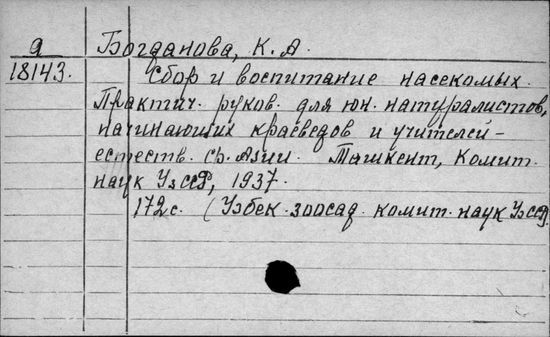 Богданова, К. А.
д
18143.
Сбор и воспитание насекомых.
Практич. руков. для юн. натуралистов,
начинающих краеведов и учителей-
естеств. Ср. Азии. Ташкент, Комит.
наук УзССР, 1937.
172 с. (Узбек. зоосад. комит. наук УзССР